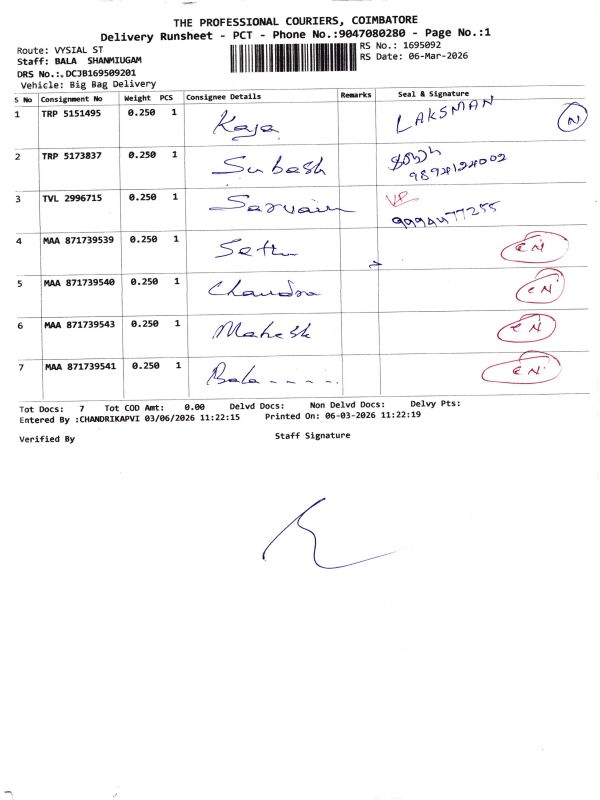 THE PROFESSIONAL COURIERS, COIMBATORE
Delivery Runsheet - PCT - Phone No.:9047080280 - Page No.:1
Route: VYSIAL ST
RS No.: 1695092
Staff: BALA SHANMIUGAM
RS Date: 06-Mar-2026
DRS No.:.DCJB169509201
Vehicle: Big Bag Delivery
S No Consignment No Weight PCS Consignee Details Remarks Seal & Signature
1 TRP 5151495 0.250 1 Kaja LAKSMAN N
2 TRP 5173837 0.250 1 Subash
3 TVL 2996715 0.250 1 VP 9994477255
4 MAA 871739539 0.250 1 Sethu CN
5 MAA 871739540 0.250 1 Chandra CN
6 MAA 871739543 0.250 1 Mahesh CN
7 MAA 871739541 0.250 1 Bala CN
Tot Docs: 7 Tot COD Amt: 0.00 Delvd Docs: Non Delvd Docs: Delvy Pts:
Entered By :CHANDRIKAPVI 03/06/2026 11:22:15 Printed On: 06-03-2026 11:22:19
Verified By Staff Signature